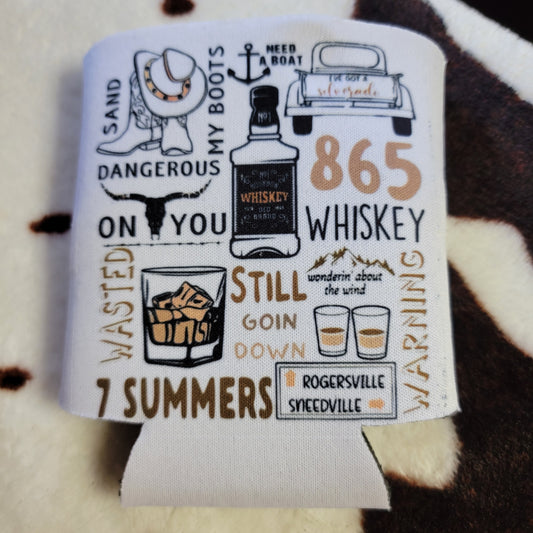 SAND
MY BOOTS
NEED
A BOAT
I'VE GOT A
silverado
DANGEROUS
No1
WHISKEY
OLD
BRAND
865
WHISKEY
ON YOU
WASTED
STILL
GOIN
DOWN
wonderin' about
the wind
WARNING
7 SUMMERS
ROGERSVILLE
SNEEDVILLE